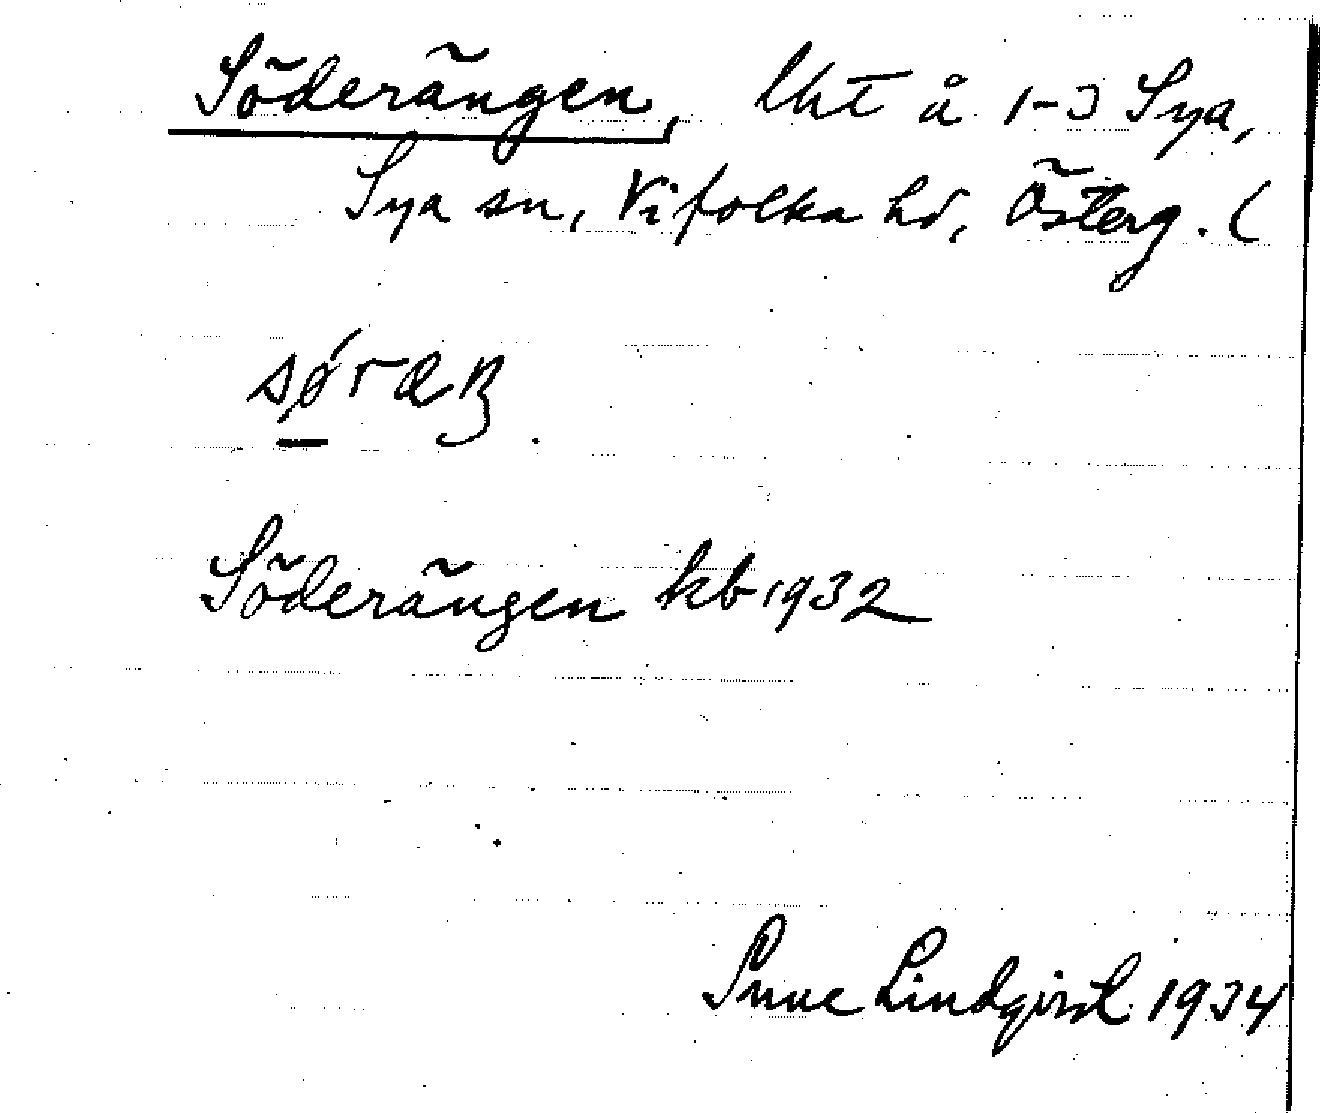 Söderängen, lht å 1-3 Sya,
Sya sn, Vifolka hd, Österg. (
Söderängen kb 1932
Sune Lindqvist 1934